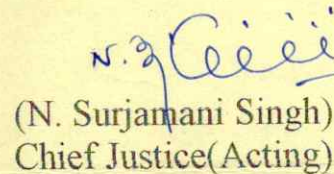 (N. Surjamani Singh)
Chief Justice(Acting)